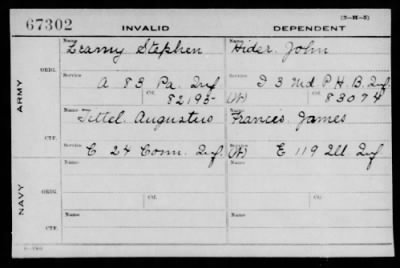 67302 INVALID DEPENDENT (3-H-5)
Name Name
Leamy Stephen Hider, John
ORIG. Service Service
A 83 Pa. Inf D 3 Md P H B. Inf
ARMY Ctf. 82193- (W) Ctf. 83074
Name Name
Tittel, Augustus Frances, James
CTF. Service Service
C 24 Conn. Inf. (W) E 119 Ill Inf
Name Ctf. Name Ctf.
NAVY ORIG. Service Service
Ctf. Ctf.
Name Name
CTF. Service Service